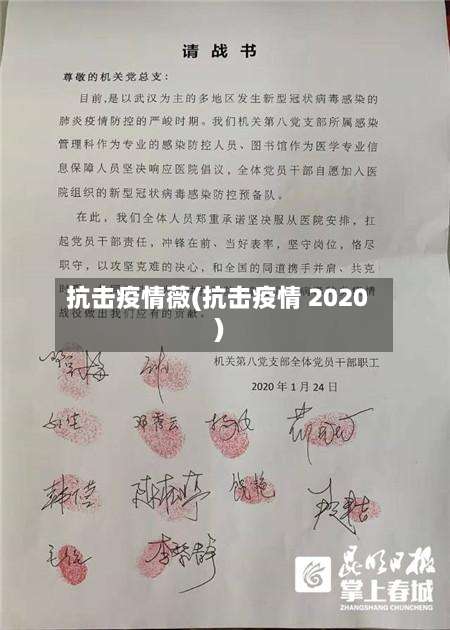 请战书
尊敬的机关党总支：
目前，是以武汉为主的多地区发生新型冠状病毒感染的
肺炎疫情防控的严峻时期。我们机关第八党支部所属感染
管理科作为专业的感染防控人员、图书馆作为医学专业信
息保障人员坚决响应医院倡议，全体党员干部自愿加入医
院组织的新型冠状病毒感染防控预备队。
在此，我们全体人员郑重承诺坚决服从医院安排，扛
起党员干部责任，冲锋在前、当好表率，坚守岗位，恪尽
职守，以攻坚克难的决心，和全国的同道携手并肩、共克
抗击疫情薇(抗击疫情 2020
)
战役做出我们应有的贡献。
机关第八党支部全体党员干部职工
2020年1月24日
邓秀云
韩莹
陈林婷
饶艳
毛铭
昆明日报
掌上春城
ZHANGSHANG CHUNCHENG